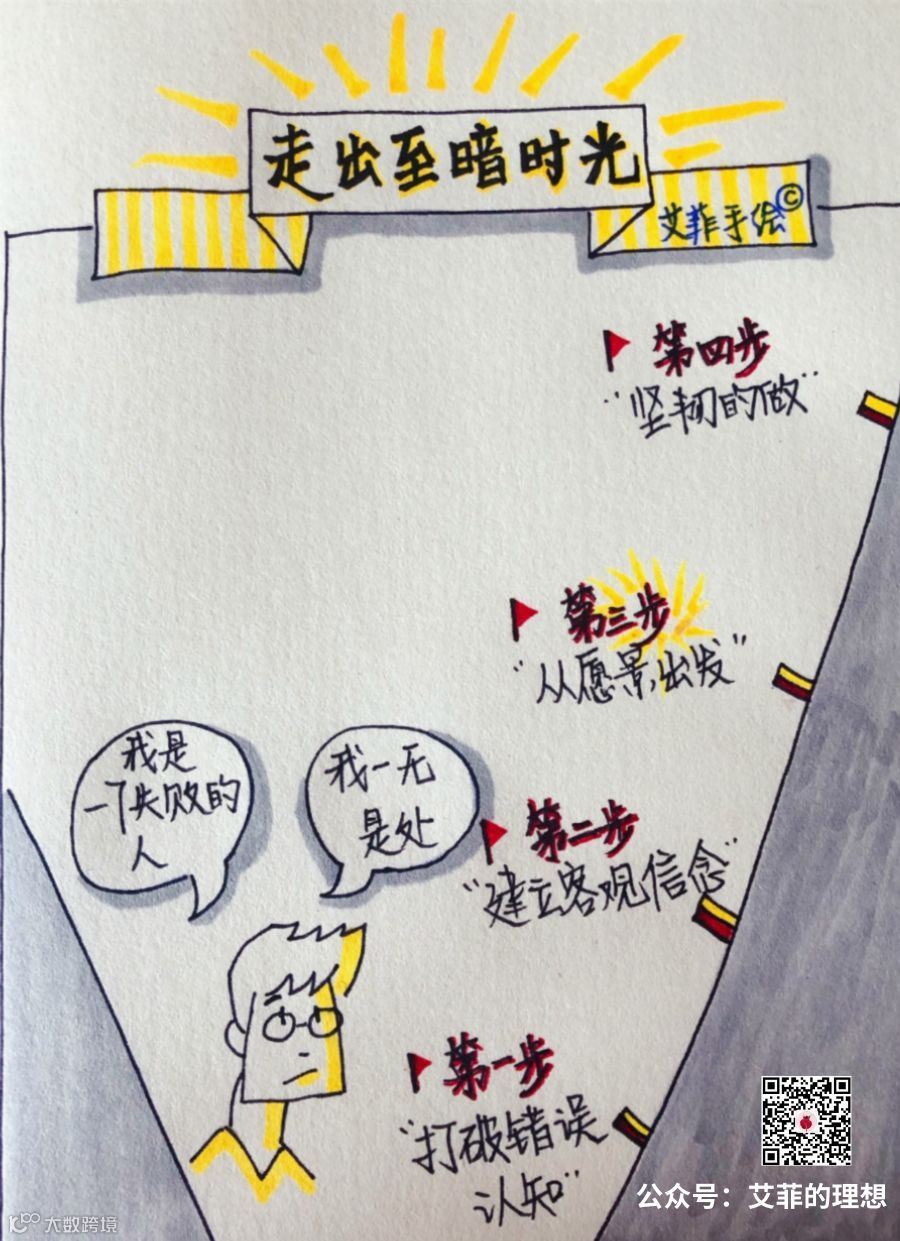 走出至暗时光
艾菲手绘©
第四步
"坚韧的做"
第三步
"从愿景出发"
我是
一个失败的
人
我一无
是处
第二步
"建立客观信念"
第一步
"打破错误
认知"
公众号：艾菲的理想
大数跨境